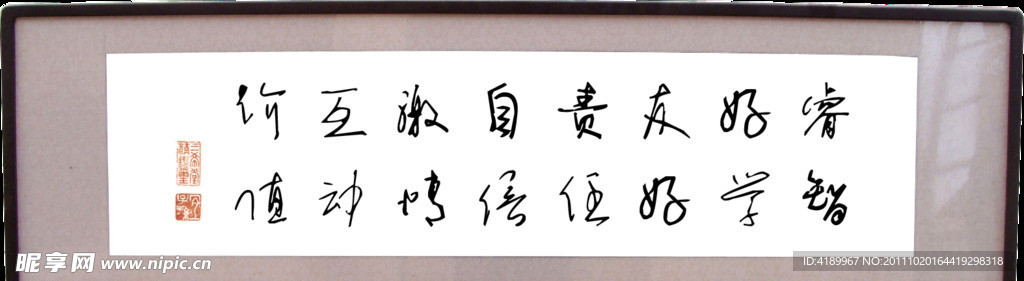 睿智
好学
友好
责任
自信
激情
互动
价值
昵享网 www.nipic.cn
ID:4189967 NO:20111020164419298318